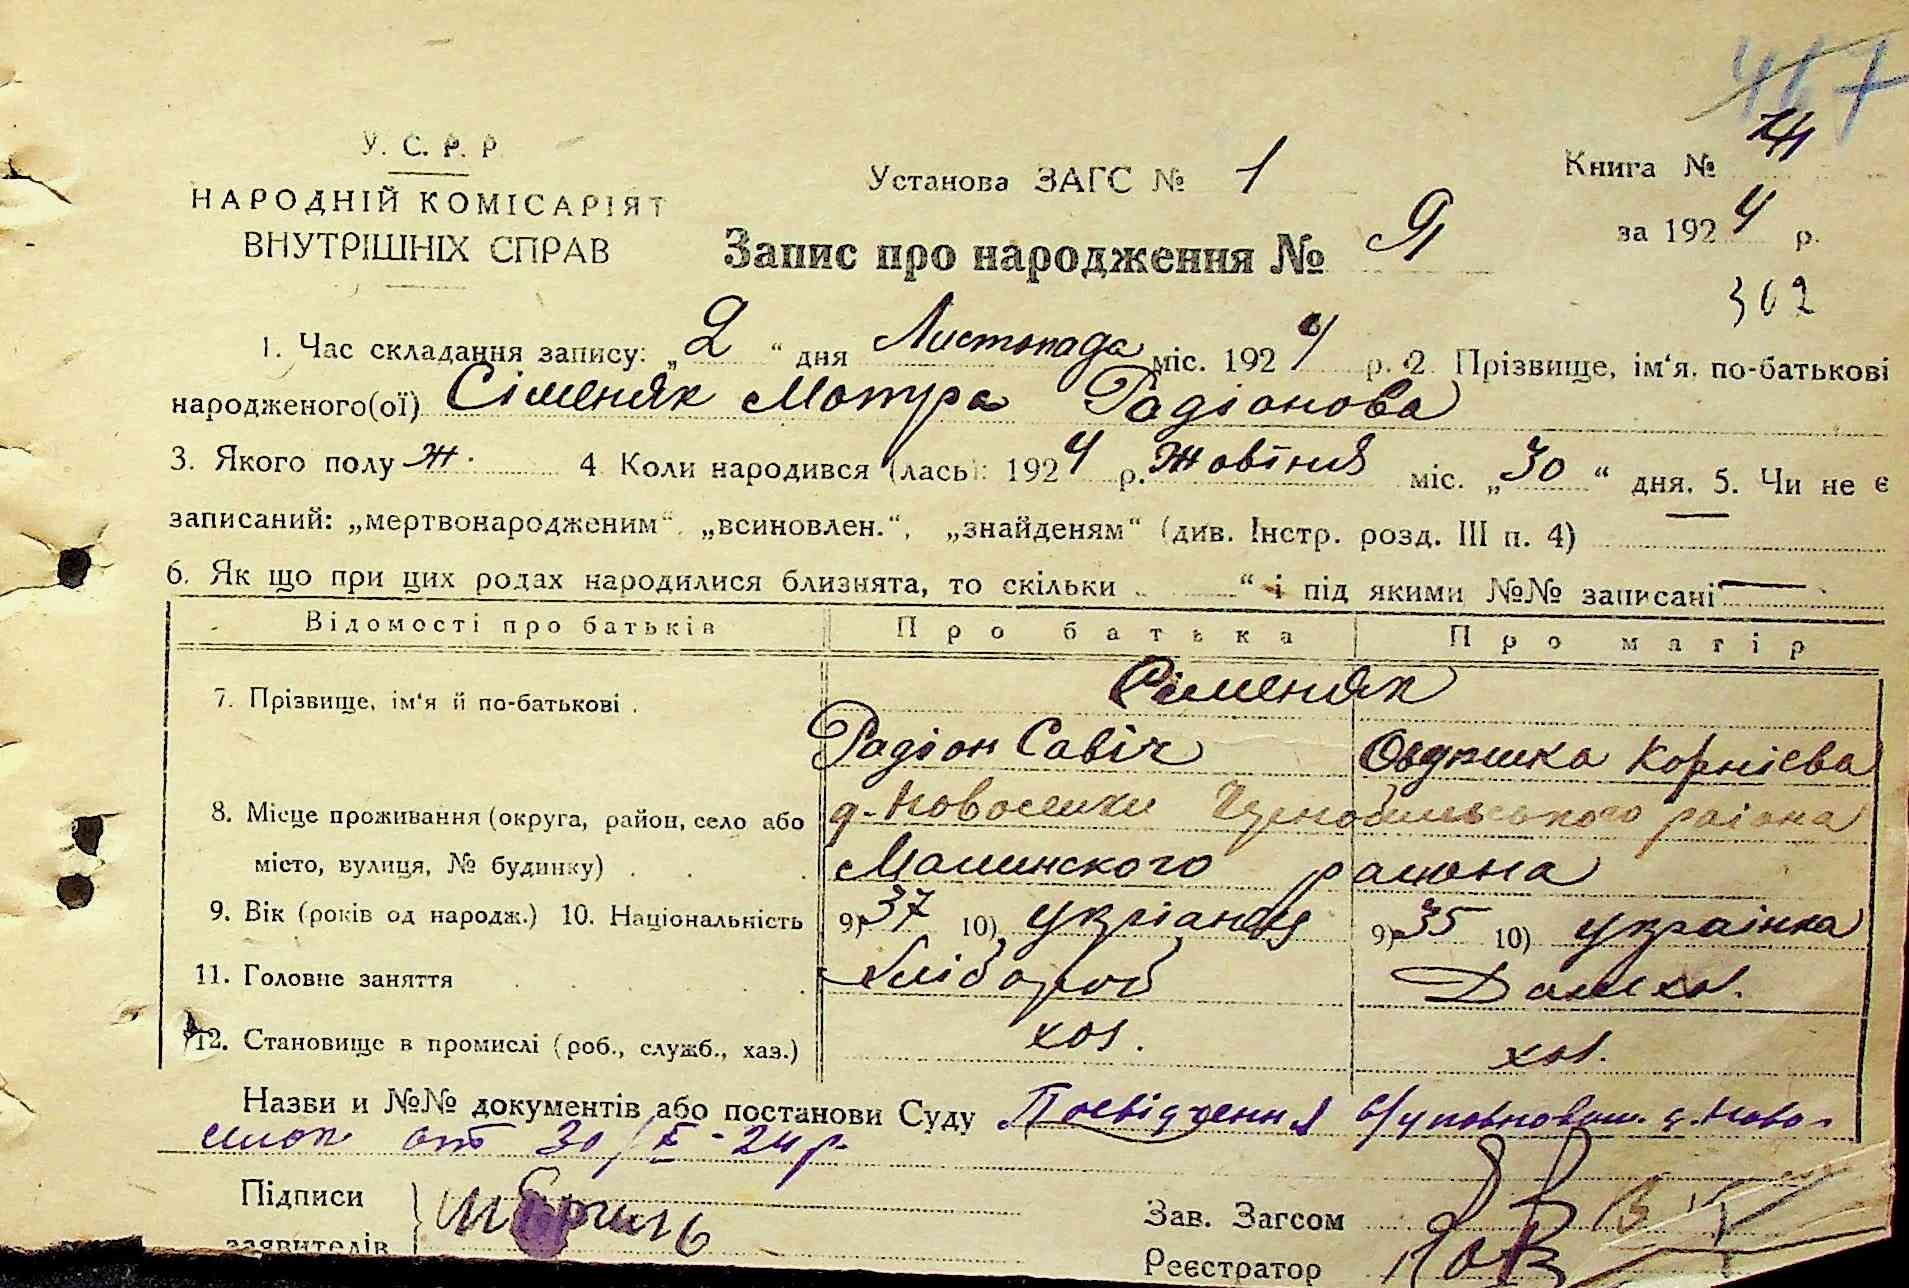 417
У. С. Р. Р.
НАРОДНІЙ КОМІСАРІЯТ
ВНУТРІШНІХ СПРАВ
Установа ЗАГС № 1
Книга №
за 1924 р.
Запис про народження №
302
1. Час складання запису: „2“ дня Листопада міс. 1924 р. 2. Прізвище, ім‘я, по-батькові
народженого(ої) Сіменяк Мотра Радіонова
3. Якого полу ж. 4 Коли народився (лась): 1924 р. Жовтня міс. „30“ дня. 5. Чи не є
записаний: „мертвонародженим“, „всиновлен.“, „знайденям“ (див. Інстр. розд. III п. 4) —
6. Як що при цих родах народилися близнята, то скільки “ і під якими №№ записані —
Відомості про батьків Про батька Про матір
7. Прізвище, ім‘я й по-батькові . Сіменяк
Радіон Савіч Овдюшка Корнієва
8. Місце проживання (округа, район, село або д. Новоселки района
місто, вулиця, № будинку) . . . Малинского района
9. Вік (років од народж.) 10. Національність 9) 37 10) 9) 35 10) українка
11. Головне заняття хлібороб Домхоз.
12. Становище в промислі (роб., служб., хаз.) хоз. хоз.
Назви и №№ документів або постанови Суду Посвідчення с/уповноваж. д. Ново-
селок от 30/X-24 р.
Підписи
заявителів
Зав. Загсом
Реєстратор